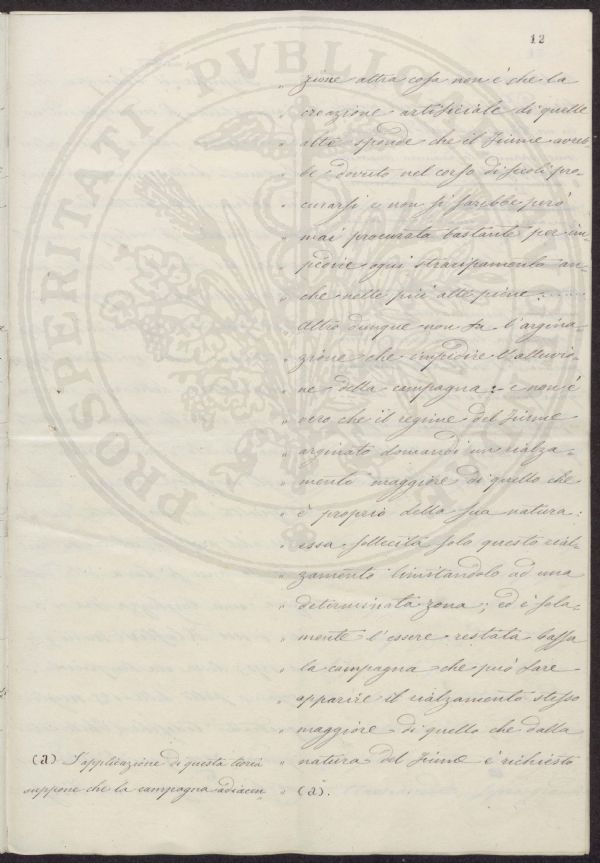 12
" zione altra cosa non è che la
" creazione artificiale di quelle
" alte sponde che il fiume avreb-
" be dovuto nel corso di secoli pro
" curarsi e non si sarebbe però
" mai procurata bastante per im-
" pedire ogni straripamento an-
" che nelle più alte piene:
" Altro dunque non fa l'argina-
" zione che impedire l'alluvio-
" ne della campagna: - e non è
" vero che il regime del fiume
" arginato domandi un rialza-
" mento maggiore di quello che
" è proprio della sua natura:
" essa sollecita solo questo rial-
" zamento limitandolo ad una
" determinata zona; ed è sola-
" mente l'essere restata bassa
" la campagna che può fare
" apparire il rialzamento stesso
" maggiore di quello che dalla
" natura del fiume è richiesto
" (a).
(a) L'applicazione di questa teoria
suppone che la campagna adiacen
PROSPERITATI PVBLICAE